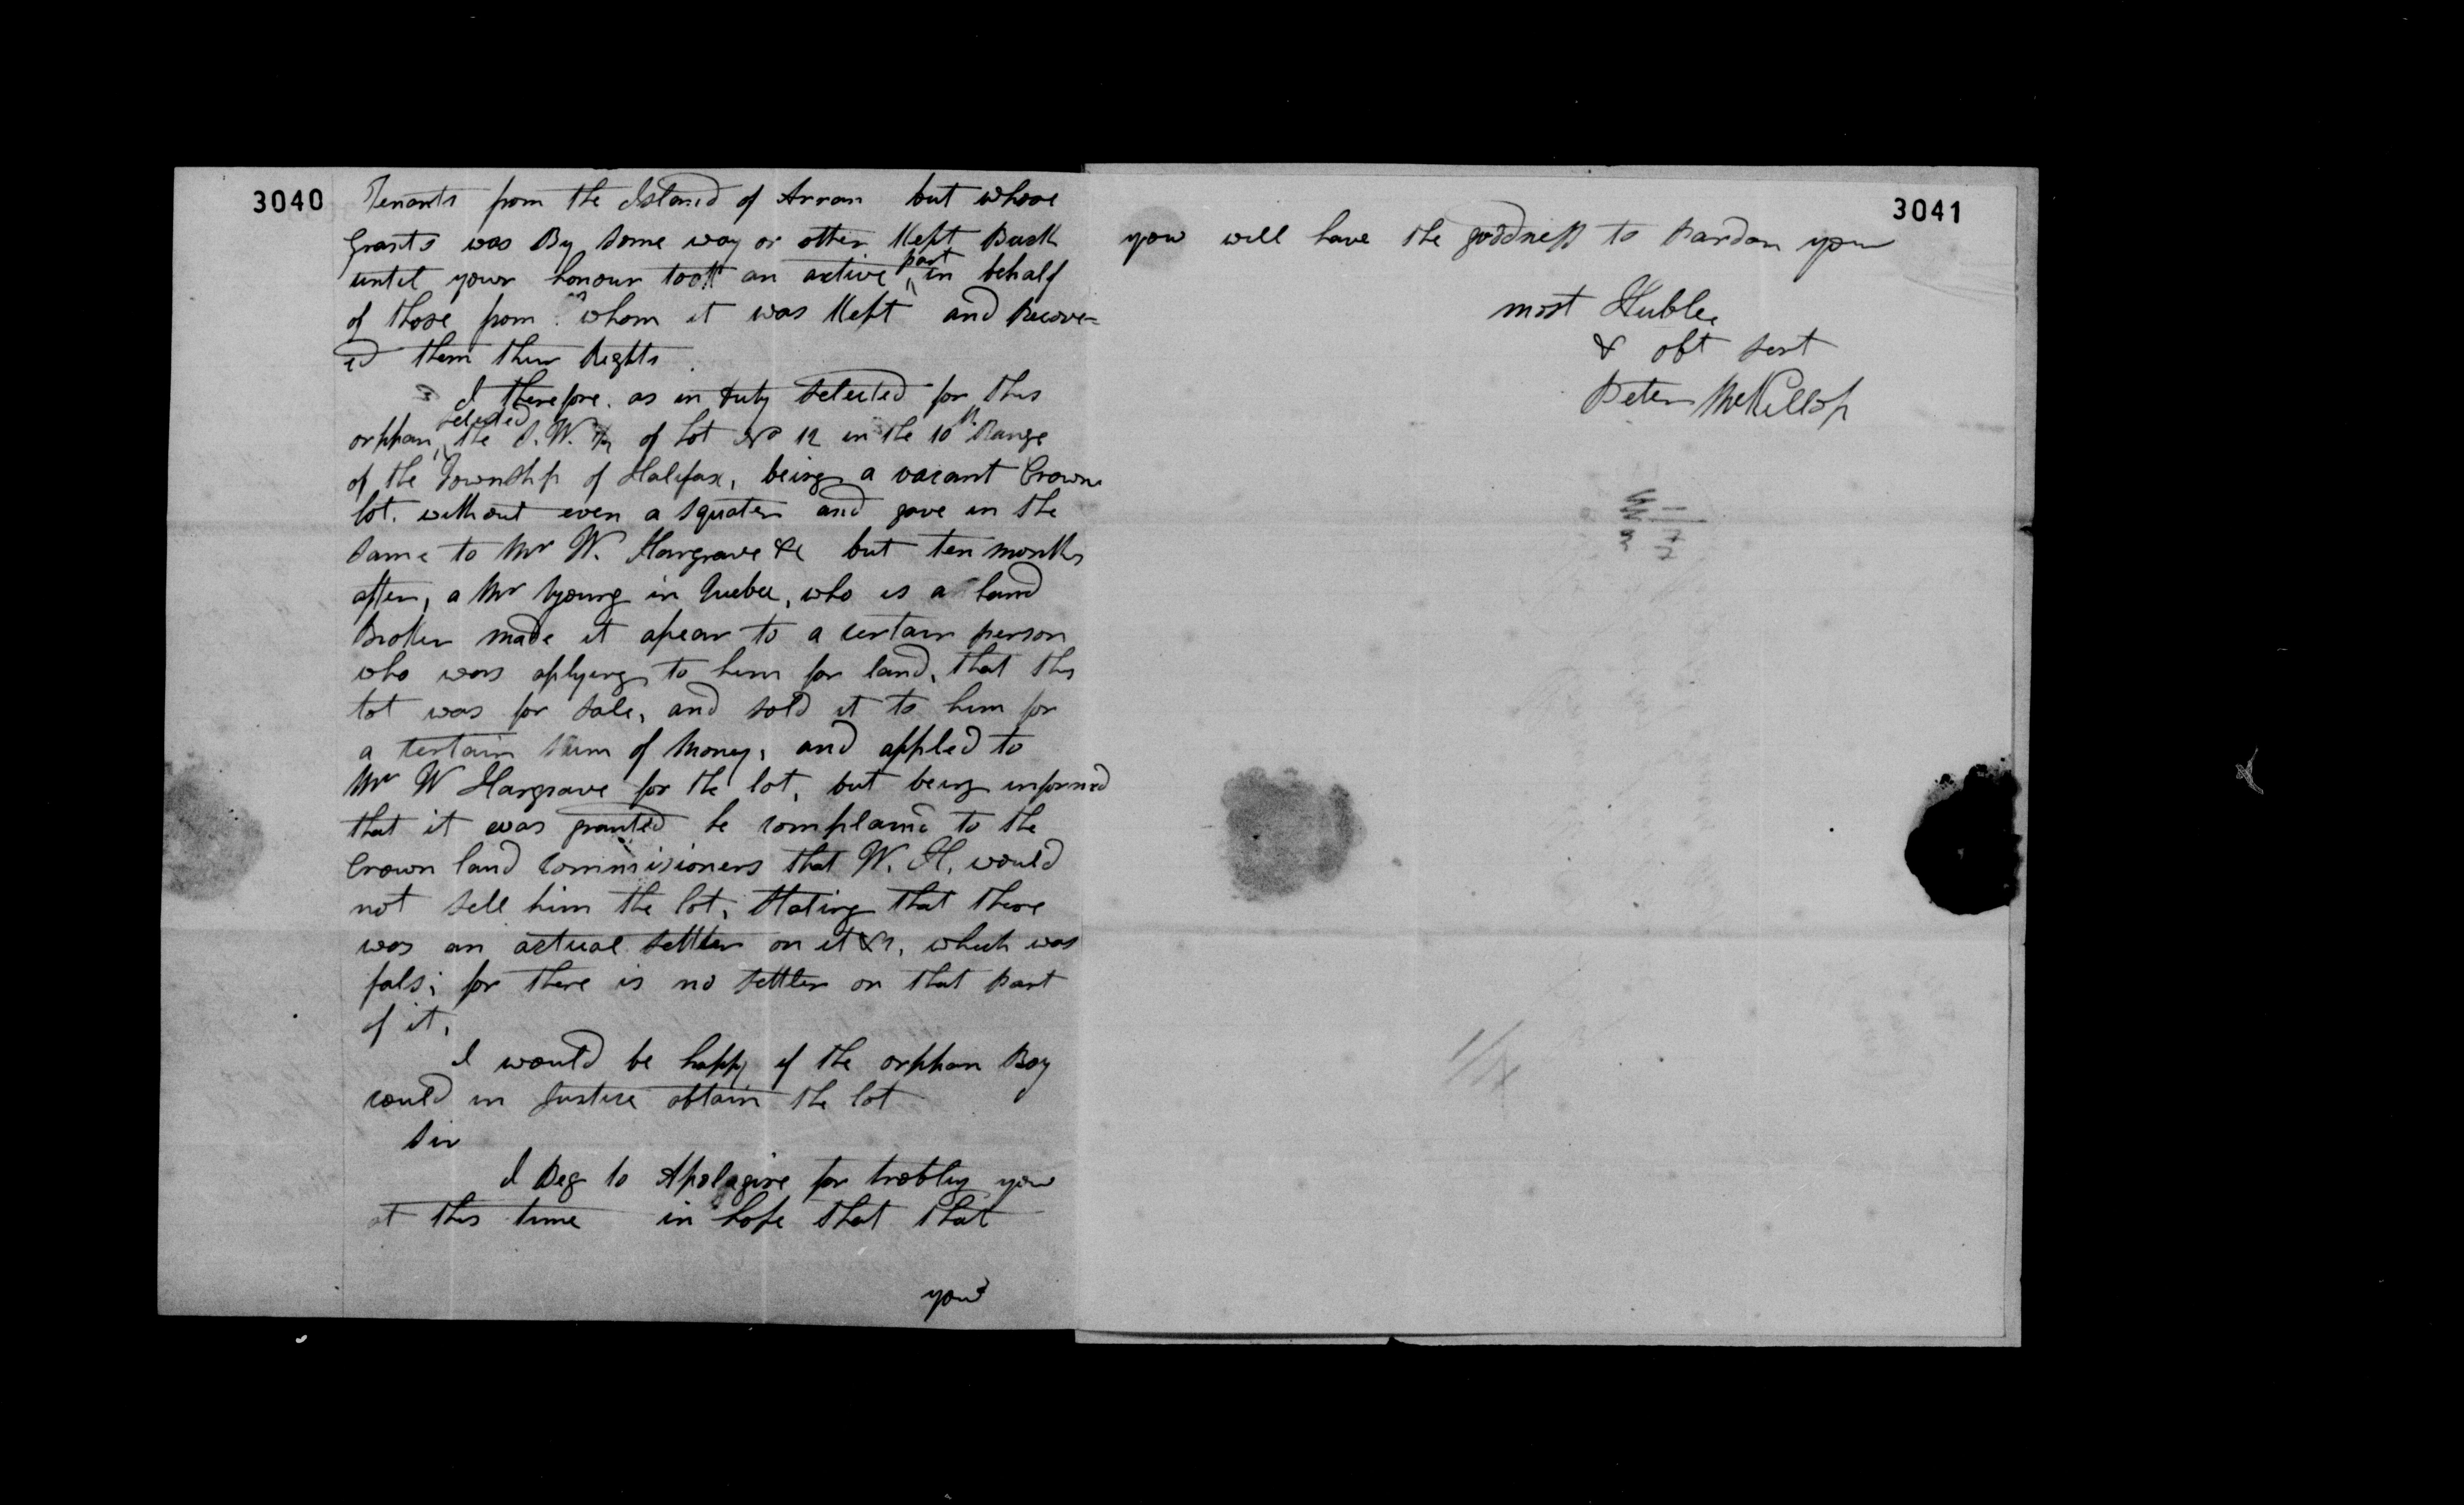 3040
Tenants from the Island of Arran but whose
grants was By some way or other Kept Back
until your honour took an active part in behalf
of those from whom it was Kept and Recover=
ed them their Rights
I therefore as in duty Selected for this
orphan selected the S. W. ½ of Lot No 12 in the 10th Range
of the Township of Halifax, being a vacant Crown
lot. without even a squater and gave in the
same to Mr W. Hargrave &c but ten months
after, a Mr Young in Quebec, who is a land
Broker made it apear to a certain person
who was aplying to him for land, that this
lot was for sale, and sold it to him for
a certain sum of Money, and appled to
Mr W Hargrave for the lot, but being informed
that it was granted he complaind to the
Crown land commisioners that W. H. would
not sell him the lot, stating that there
was an actual settler on it &c, which was
fals; for there is no settler on that part
of it,
I would be happy if the orphan Boy
could in Justice obtain the lot
Sir
I Beg to Apologise for trobling you
at this time in hope that that
you
3041
you will have the goodness to Pardon your
most Huble
& obt sert
Peter McKillop